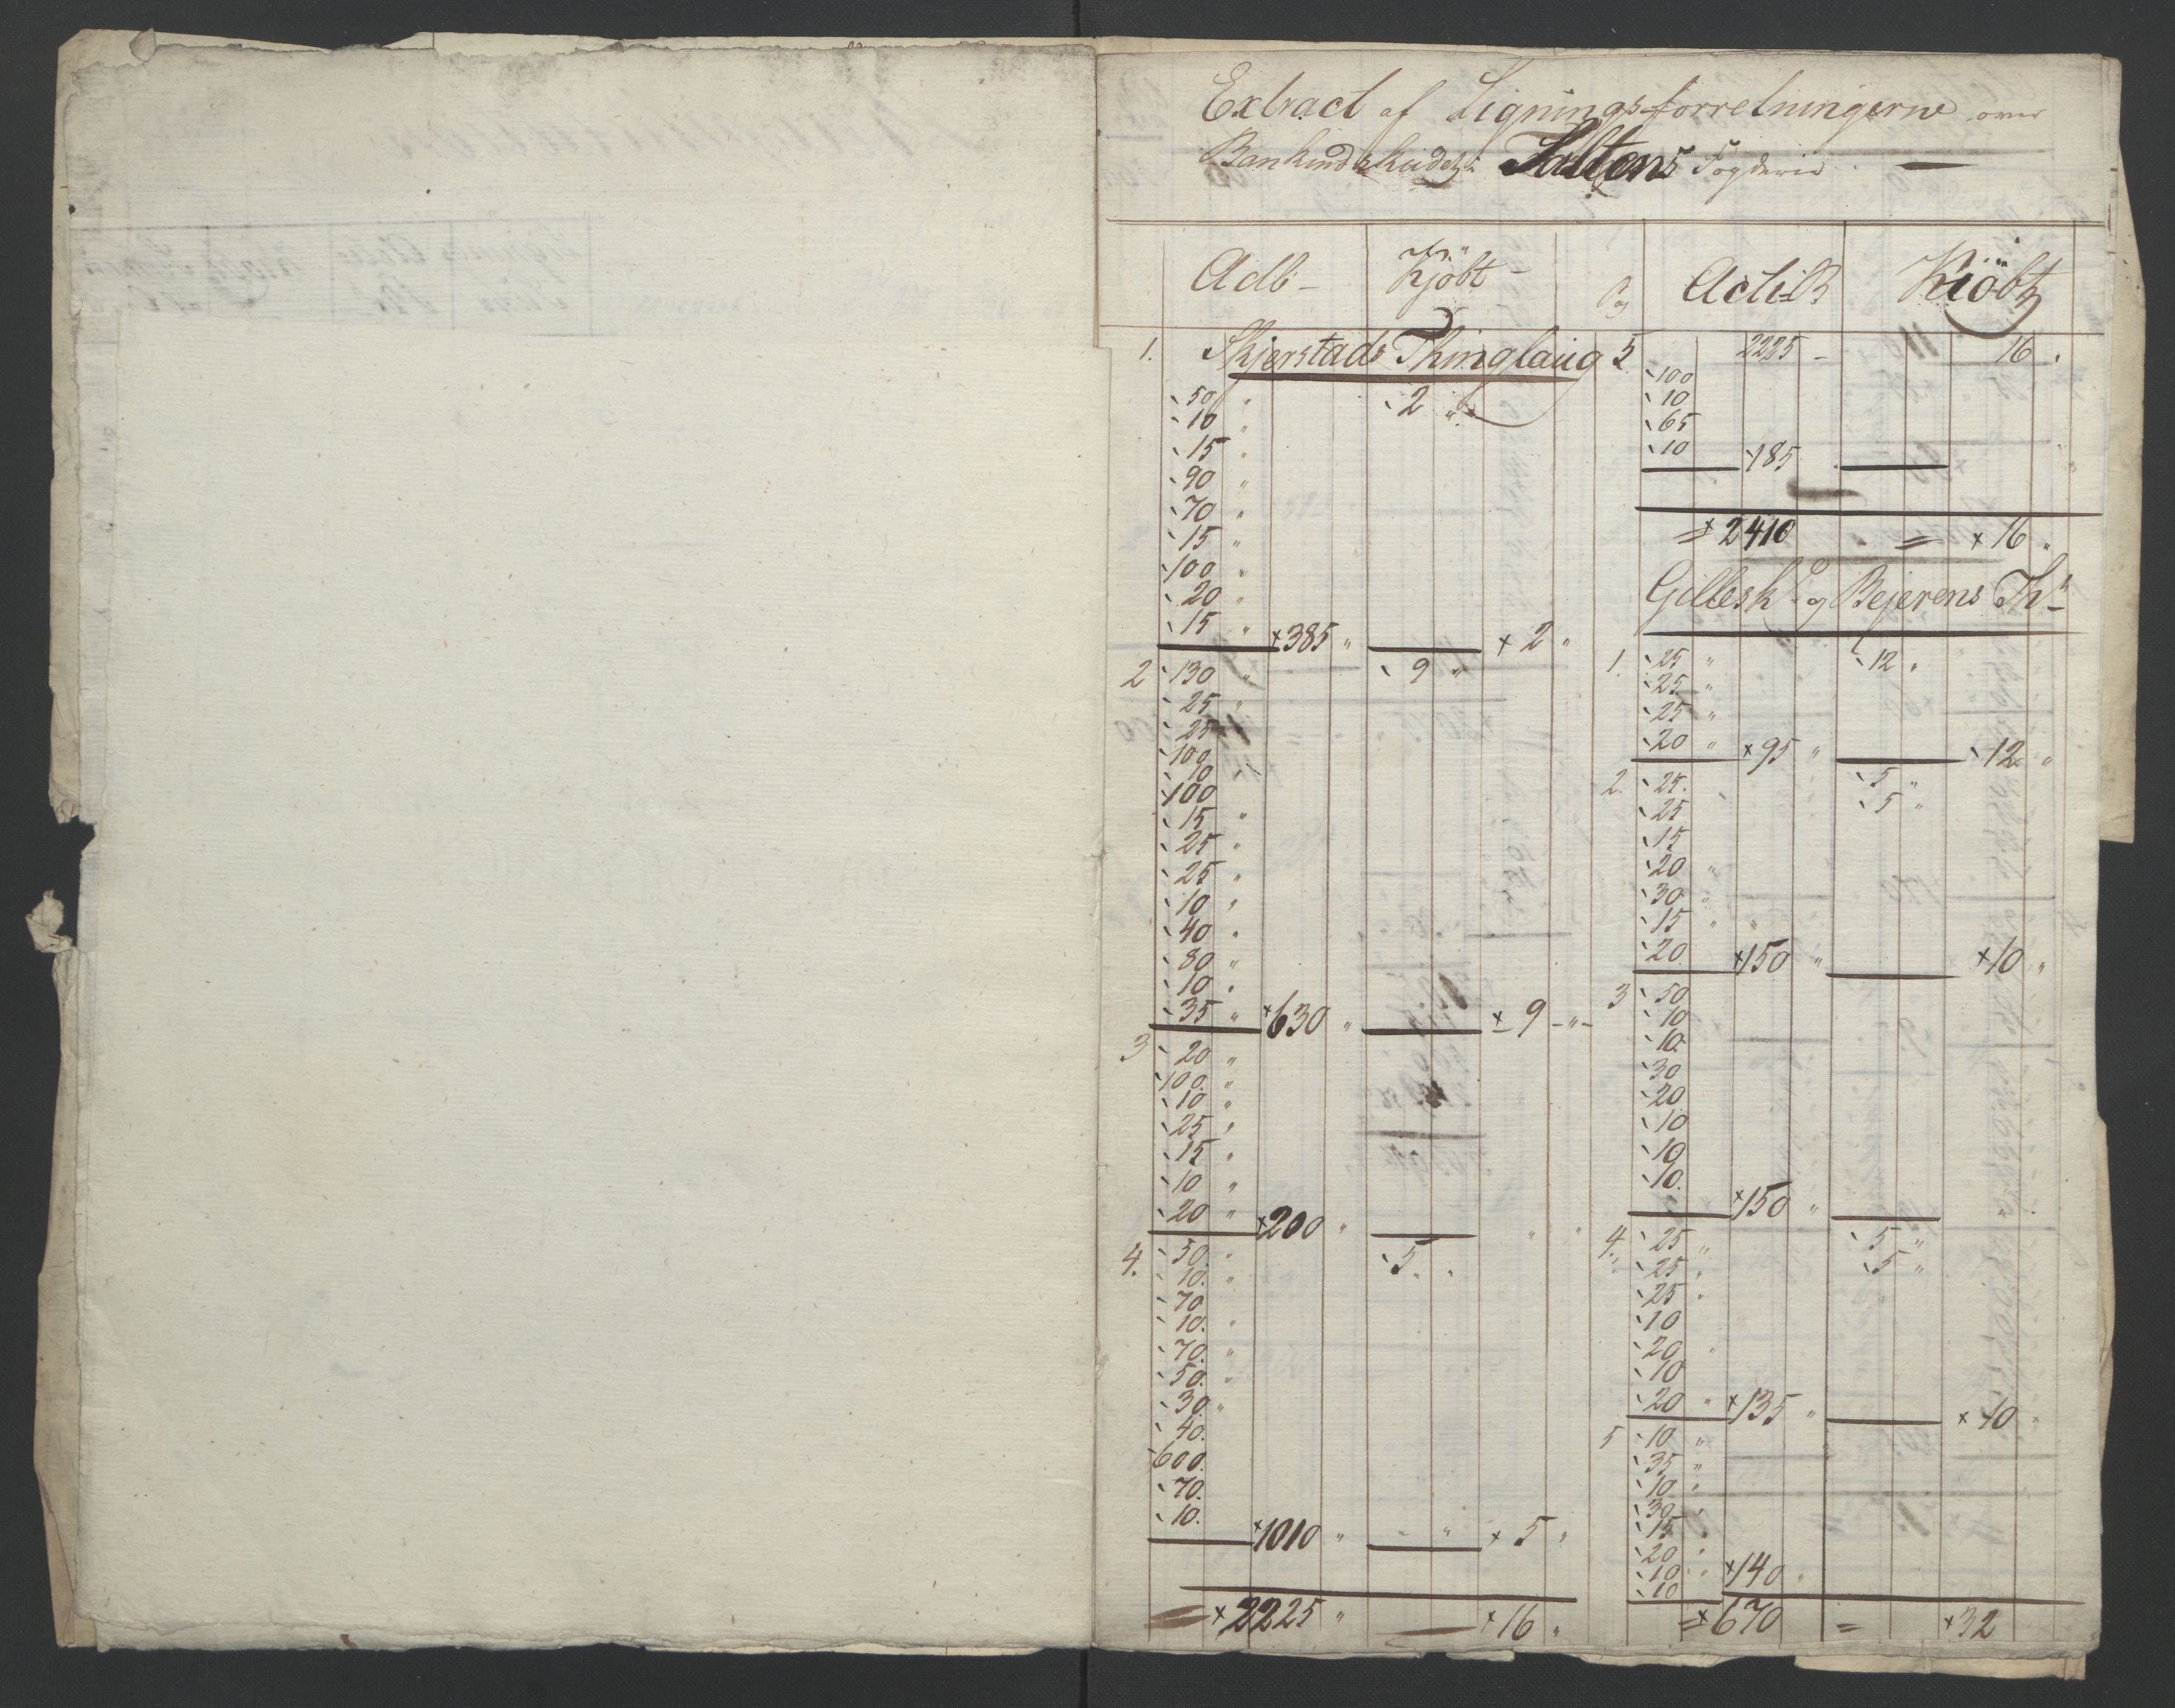 Extract af Ligningsforretningerne over
Bankindskudet i Saltens Fogderie
Actb Kjöbt
1. Skjerstads Thinglaug
50 " 2 "
10 "
15 "
90 "
70 "
15 "
100 "
20 "
15 " 385 " 2 "
2 130 " 9 "
25 "
25
100
10 "
100
15 "
25 "
25 "
10 "
40 "
80 "
10 "
35 " 630 " 9 "
3 20 "
100 "
10 "
25 "
15 "
10 "
20 " 200 " " "
4. 50. " 5. "
10. "
70
10. "
70. "
50. "
30. "
40.
600.
70.
10. 1010 " " " 5 "
2225 " 16 "
Pag Actie Kiöbt
5 2225 16
100
10
65
10 185
= 2410 = 16 "
Gillesk og Bejerens Th
1. 25 " 12 "
25 "
25 "
20 " 95 " 12 "
2. 25. 5 "
25 5 "
15
20 "
30 "
15 " "
20 150 " 10 "
3 50
10
10
30
20
10
10
10. 150 "
4. 25 " 5 "
25 " 5 "
25 "
10
20 "
10
20 " 135 " 10 "
5 10 "
35 "
10 "
30 "
15 "
20 "
10 " 140 "
10
= 670 = 32